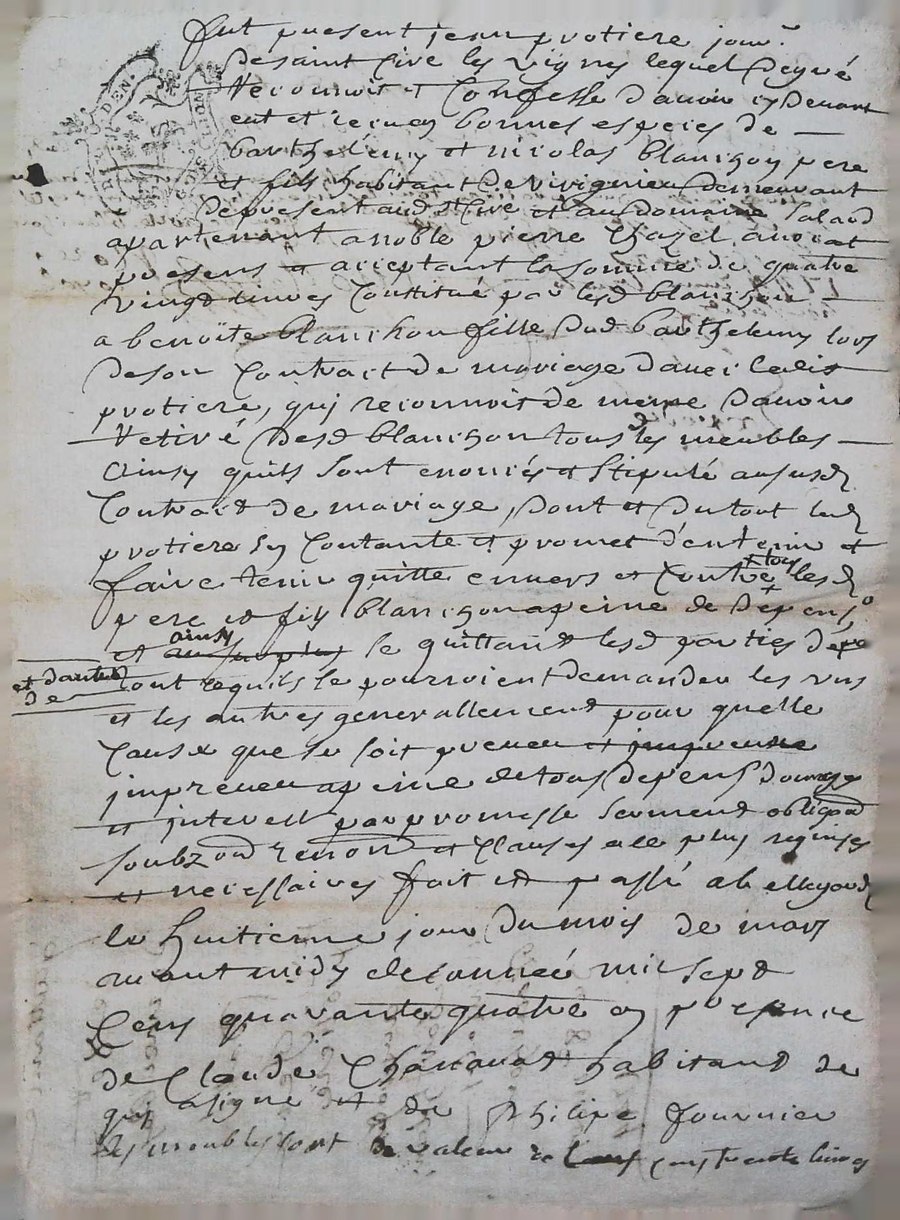 fut present jean protiere jour.
de saint cire les vignes lequel de gré
reconnoit et confesse d'avoir cy devant
eut et receu en bonnes especes de
barthelemy et nicolas blanchon pere
et fils habitant de virignieu demeurant
de present aud st cire et au domaine
apartenant a noble pierre chazel avocat
presens et acceptant la somme de quatre
vingt livres constitué par lesd blanchon
a benoite blanchon fille dud barthelemy lors
de son contrait de mariage d'avec ledit
protiere, quj reconnoit de meme d'avoir
retiré desd blanchon tous les meubles
ainsy quils sont enoncés et stipulé aususd
contrait de mariage, dont et du tout led
protiere se contante et promet d'en tenir et
faire tenir quitte envers et contre tous lesd
pere et fils blanchon a peine de depens
et ainsy se quittant lesd parties de
et d'autre
de
tout ce quils se pourroient demander les uns
et les autres generallement pour quelle
cause que se soit preveu et impreveue
jmpreveu a peine de tous depens domages
et interest par promesse serment obligaon
soubzon renon et clauses a ce plus requises
et necessaires fait et passé a bellegarde
le huitieme jour du mois de mars
avant midy de l'année mil sept
cens quarante quatre en presence
de Claude habitant de
quj a signé et de Philipe fournier
les meubles sont de valeur de cens trente livres